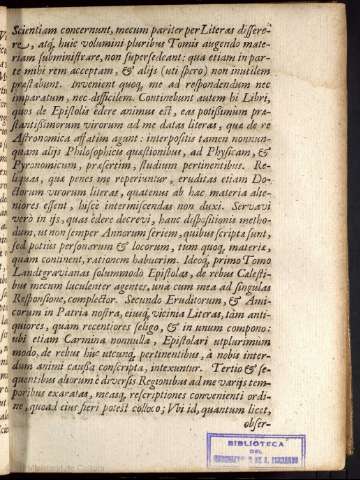 Scientiam concernunt, mecum pariter per Literas disserere
re, atq; huic volumini pluribus Tomis augendo mate-
riam subministrare, non supersedeant: qua etiam in par-
te mihi rem acceptam, & alijs (uti spero) non inutilem
præstabunt. invenient quoq; me ad respondendum nec
imparatum, nec difficilem. Continebunt autem hi Libri,
quos de Epistolis edere animus est, eas potissimum præ-
stantissimorum virorum ad me datas literas, quæ de re
Astronomica affatim agunt: interpositis tamen nonnun-
quam alijs Philosophicis quæstionibus, ad Physicam, &
Pyronomicam, præsertim, studium pertinentibus. Re-
liquas, quæ penes me reperiuntur, eruditas etiam Do-
ctorum virorum literas, quatenus ab hac materia alie-
niores essent, hisce intermiscendas non duxi. Servavi
verò in ijs, quas edere decrevi, hanc dispositionis metho-
dum, ut non semper Annorum seriem, quibus scripta sunt,
sed potius personarum & locorum, tum quoq; materiæ,
quam continent, rationem habuerim. Ideoq; primo Tomo
Landtgravianas solummodo Epistolas, de rebus Cælesti-
bus mecum luculenter agentes, una cum mea ad singulas
Responsione, complector. Secundo Eruditorum, & Ami-
corum in Patria nostra, eiusq; vicinia Literas, tàm anti-
quiores, quam recentiores seligo, & in unum compono:
ubi etiam Carmina nonnulla, Epistolari utplurimum
modo, de rebus huc utcunq; pertinentibus, à nobis inter-
dum animi caussa conscripta, intexuntur. Tertio & se-
quentibus aliorum è diversis Regionibus ad me varijs tem-
poribus exaratas, measq; rescriptiones convenienti ordi-
ne, quoad eius fieri potest colloco; Vbi id, quantum licet,
obser-
BIBLIOTECA
DEL
DE S. FERNANDO